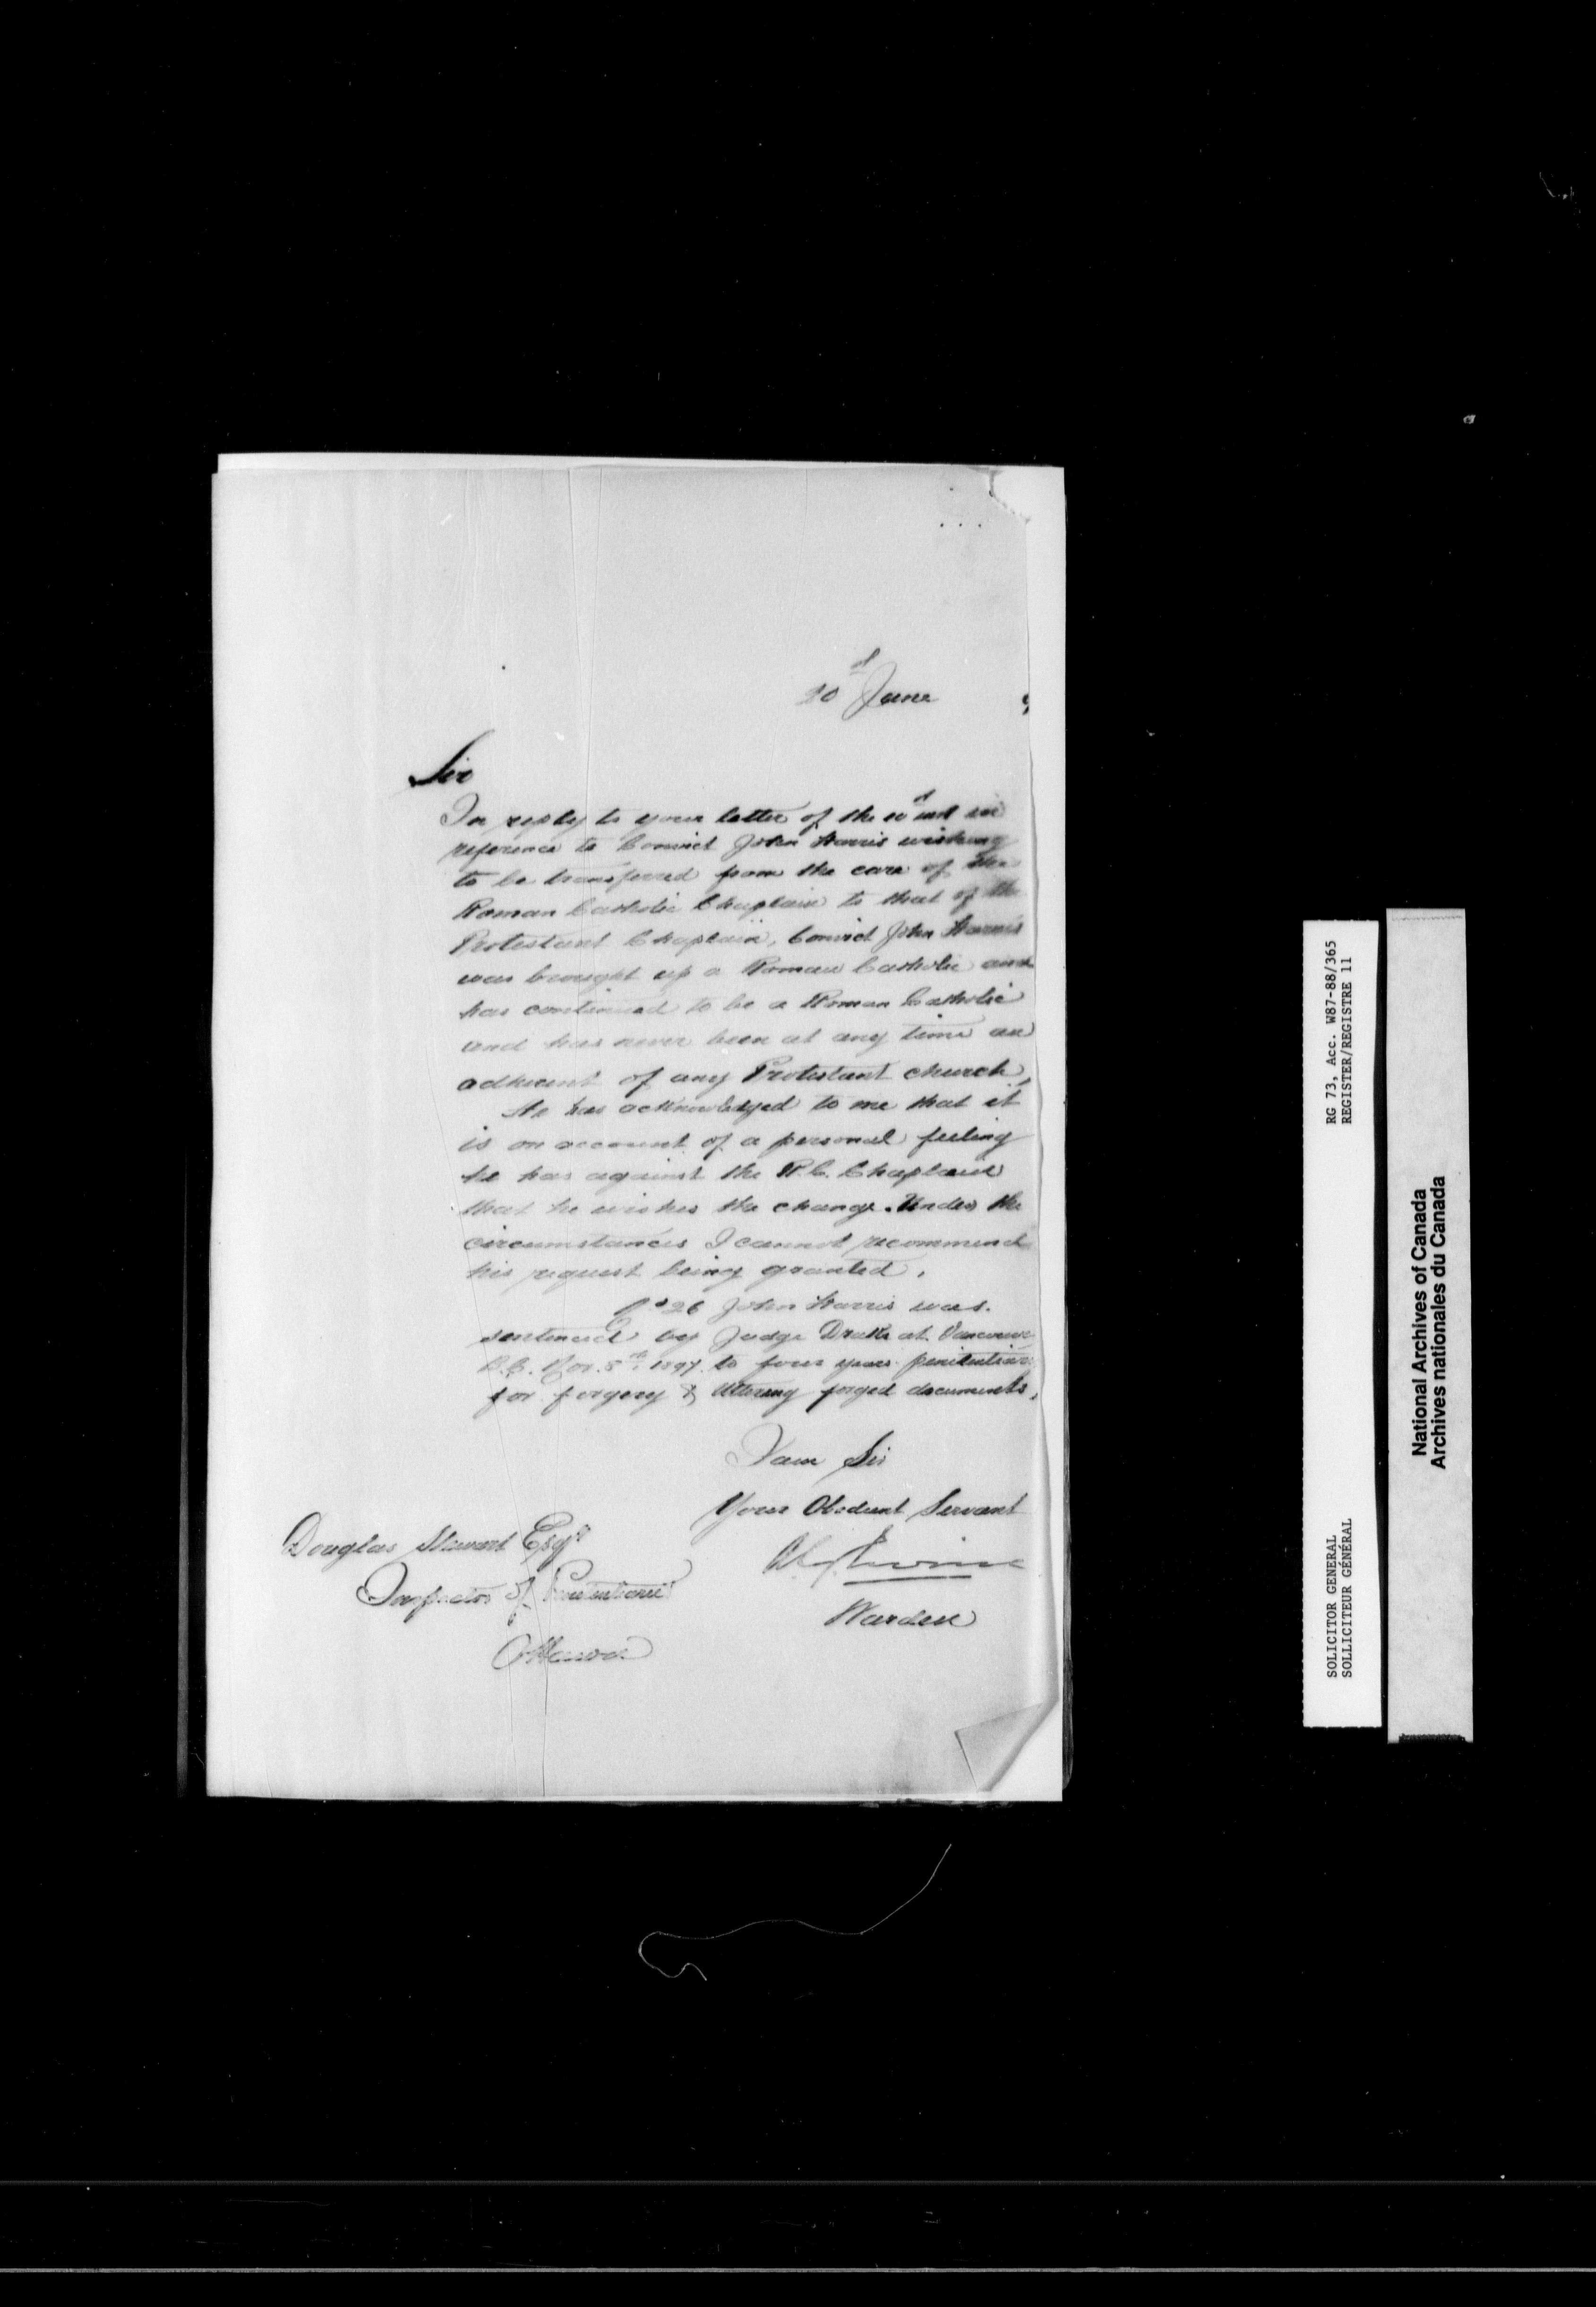 June
Sir
In reply to your letter of the inst in
reference to Convict John Harris wishing
to be transferred from the care of the
Roman Catholic Chaplain to that of the
Protestant Chaplain, Convict John Harris
was brought up a Roman Catholic and
has continued to be a Roman Catholic
and has never been at any time an
adherent of any Protestant church,
He has acknowledged to me that it
is on account of a personal feeling
he has against the R.C. Chaplain
that he wishes the change. Under the
circumstances I cannot recommend
his request being granted.
26 John Harris was
sentenced by Judge Drake at Vancouver
B.C. Nov. 8th 1897 to four years penitentiary
for forgery & uttering forged documents,
I am Sir
Your Obedient Servant
Irvine
Warden
Douglas Stewart Esqr
Inspector of Penitentiaries
Ottawa
SOLICITOR GENERAL RG 73, Acc. W87-88/365
SOLLICITEUR GÉNÉRAL REGISTER/REGISTRE 11
National Archives of Canada
Archives nationales du Canada